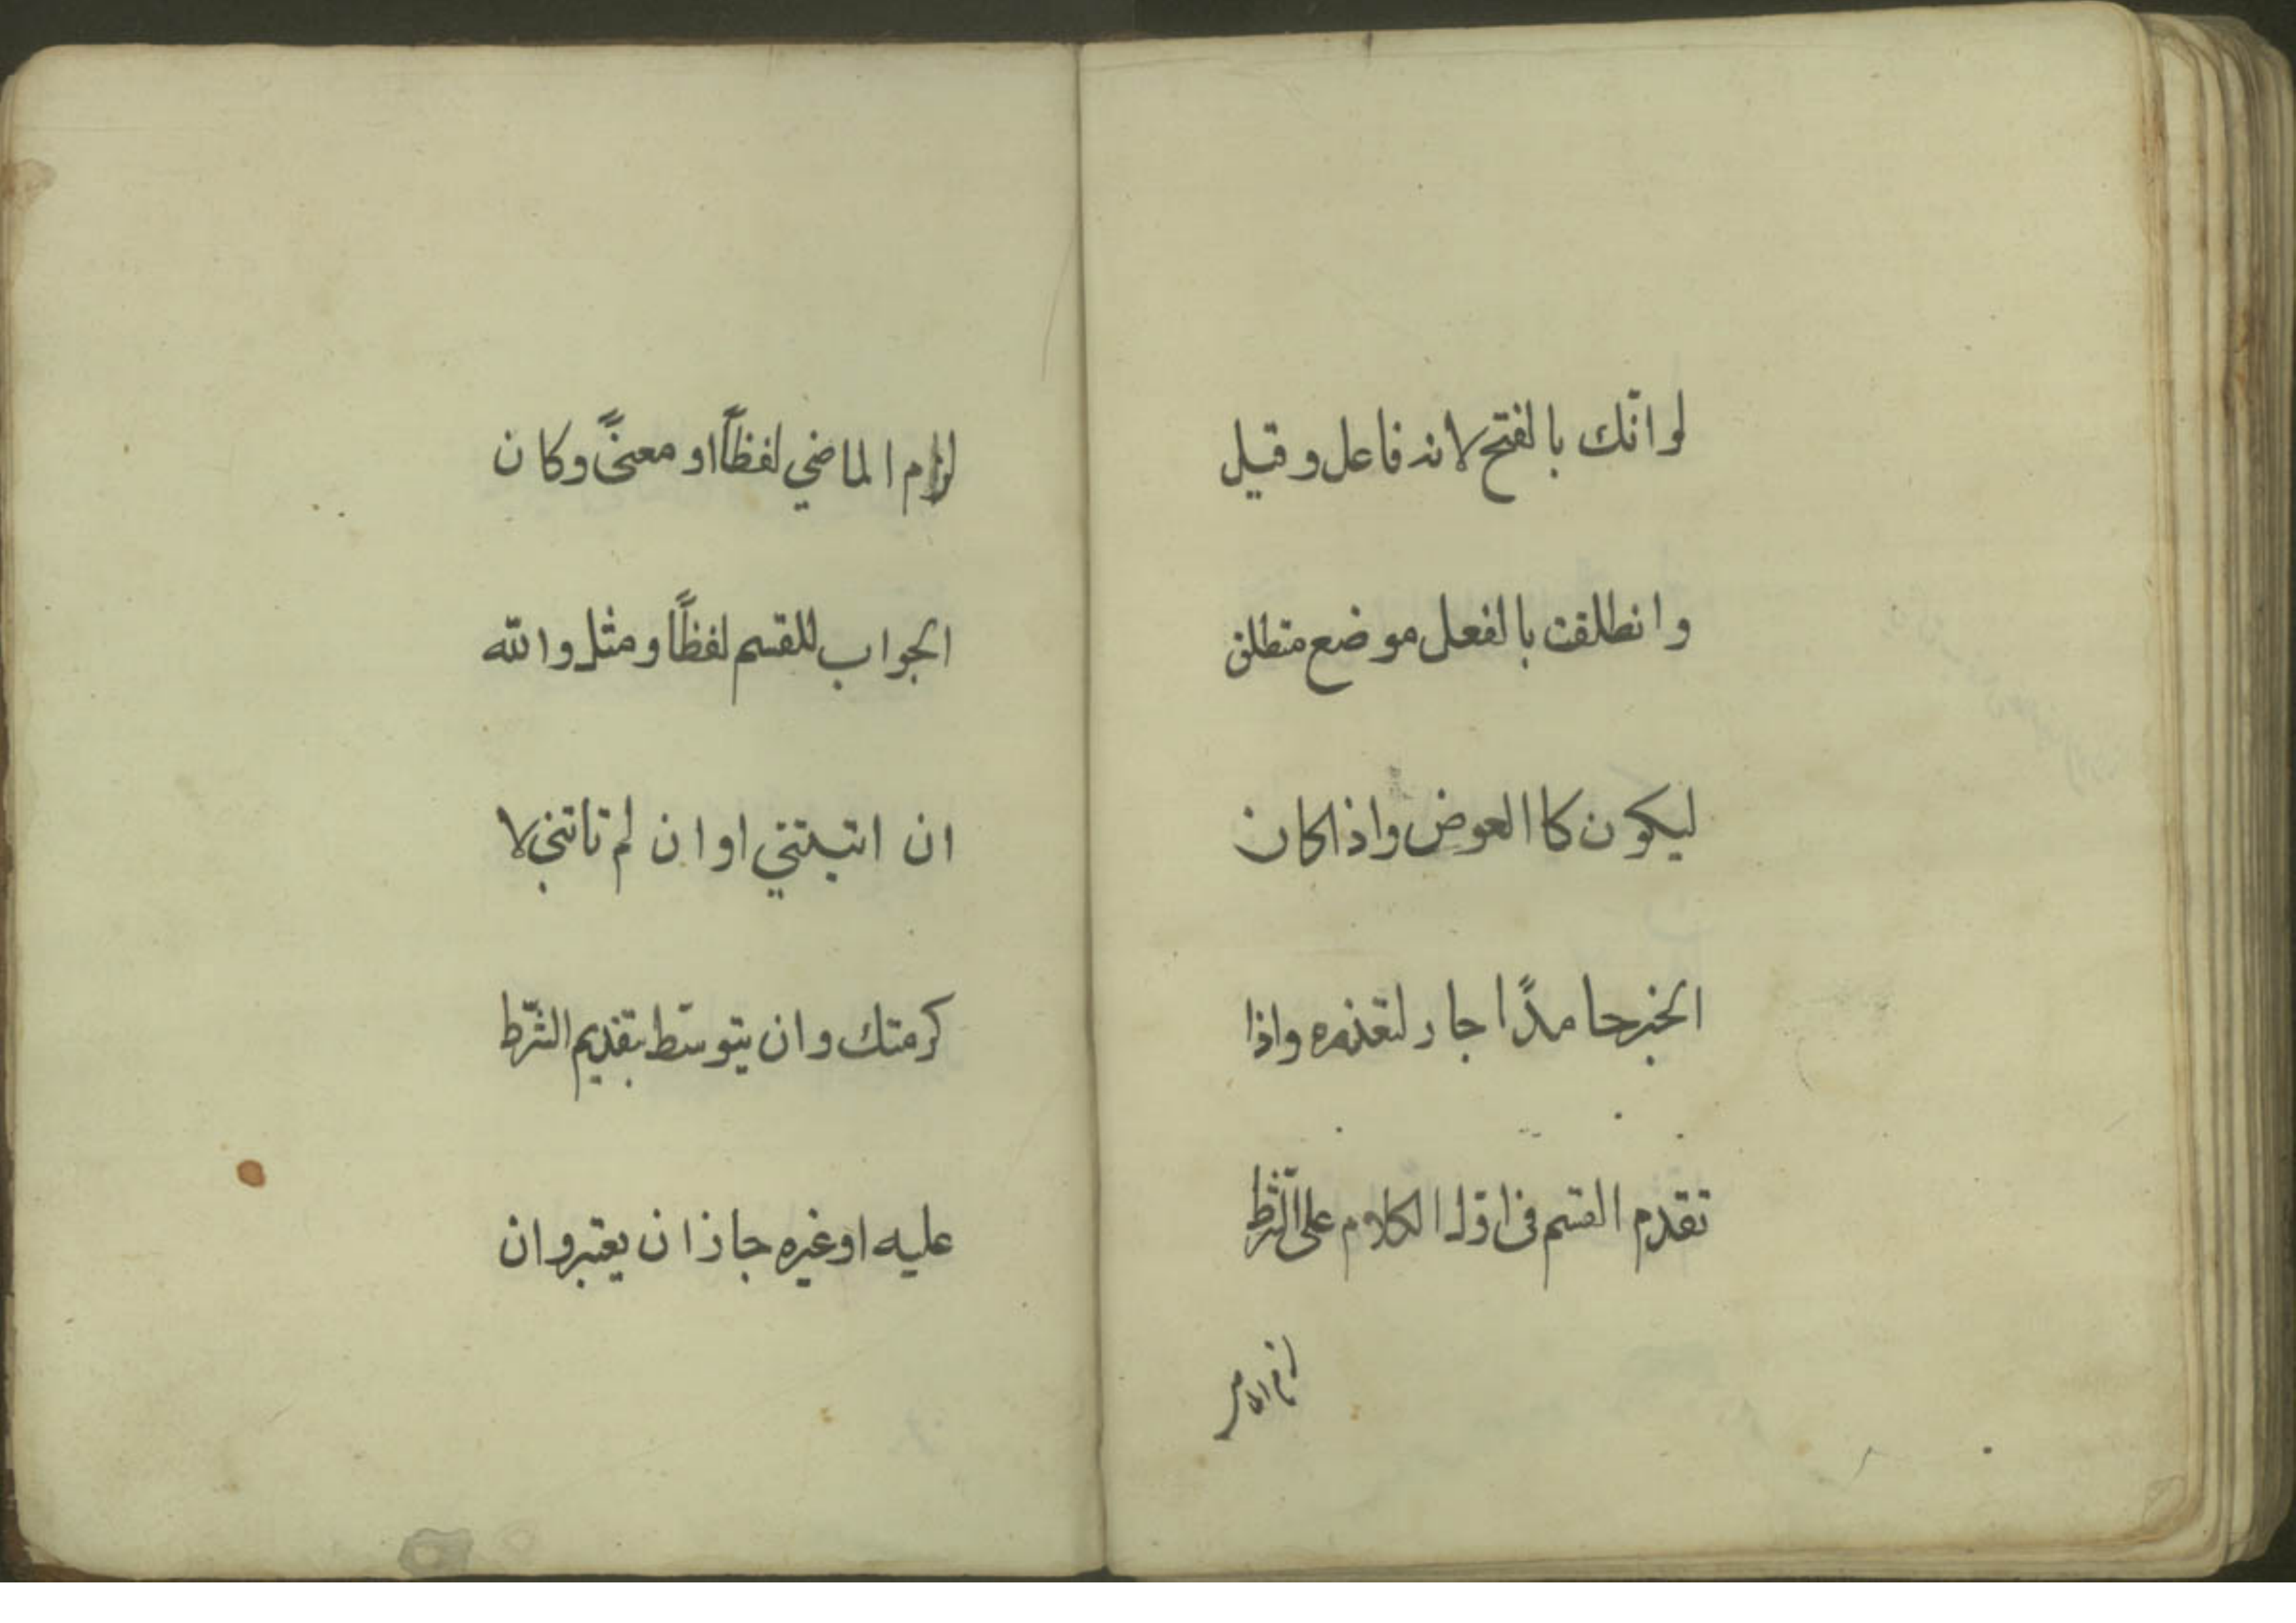 لو انّك بالفتح لانه فاعل وقيل
وانطلقت بالفعل موضع منطلق
ليكون كاالعوض واذا كان
الخبر جامدًا جاز لتعذره واذا
تقدم القسم فى اوّل الكلام على الشّرط
لزم الماضي لفظًا او معنىً وكان
الجواب للقسم لفظًا ومثل والله
ان اتيتني او ان لم تاتني لا
كرمتك وان يتوسّط بتقديم الشّرط
عليه او غيره جاز ان يعتبر وان